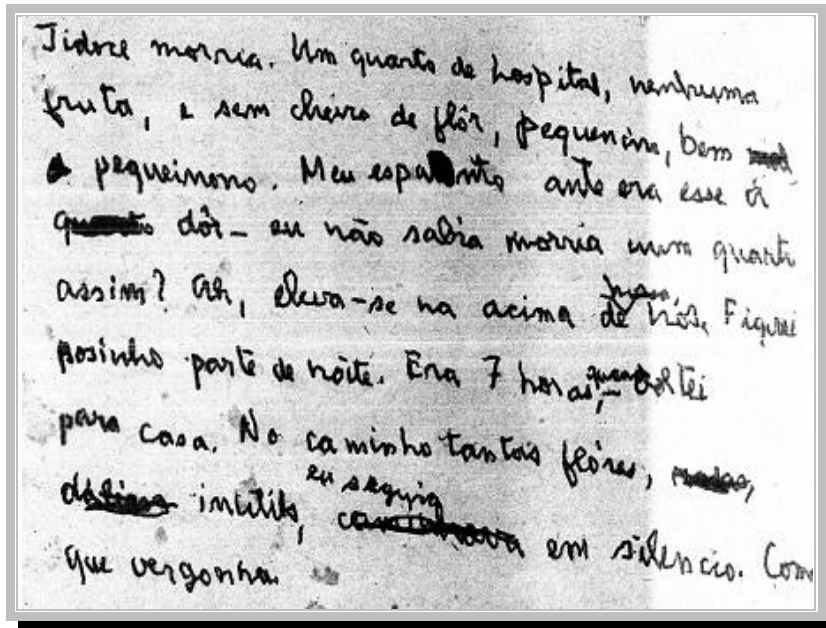 morria. Um quarto de hospital, nenhuma
fruta, e sem cheiro de flôr, pequenino, bem
pequeinono. Meu espanto ante era esse
dôr - eu não sabia morria num quarto
assim? Ah, eleva-se na acima de nós. Figuei
sosinho parte de nôite. Era 7 horas, voltei
para casa. No caminho tantas flôres,
inutils, eu seguia em silencio. Com
que vergonha.